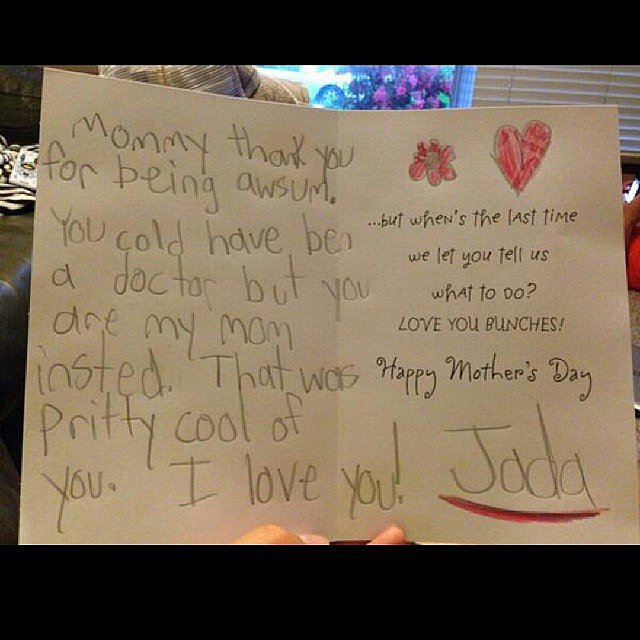 Mommy thank you
for being awsum.
You cold have ben
a doctor but you
are my mom
insted. That was
pritty cool of
you. I love you!
...but when's the last time
we let you tell us
what to do?
LOVE YOU BUNCHES!
Happy Mother's Day
Jada